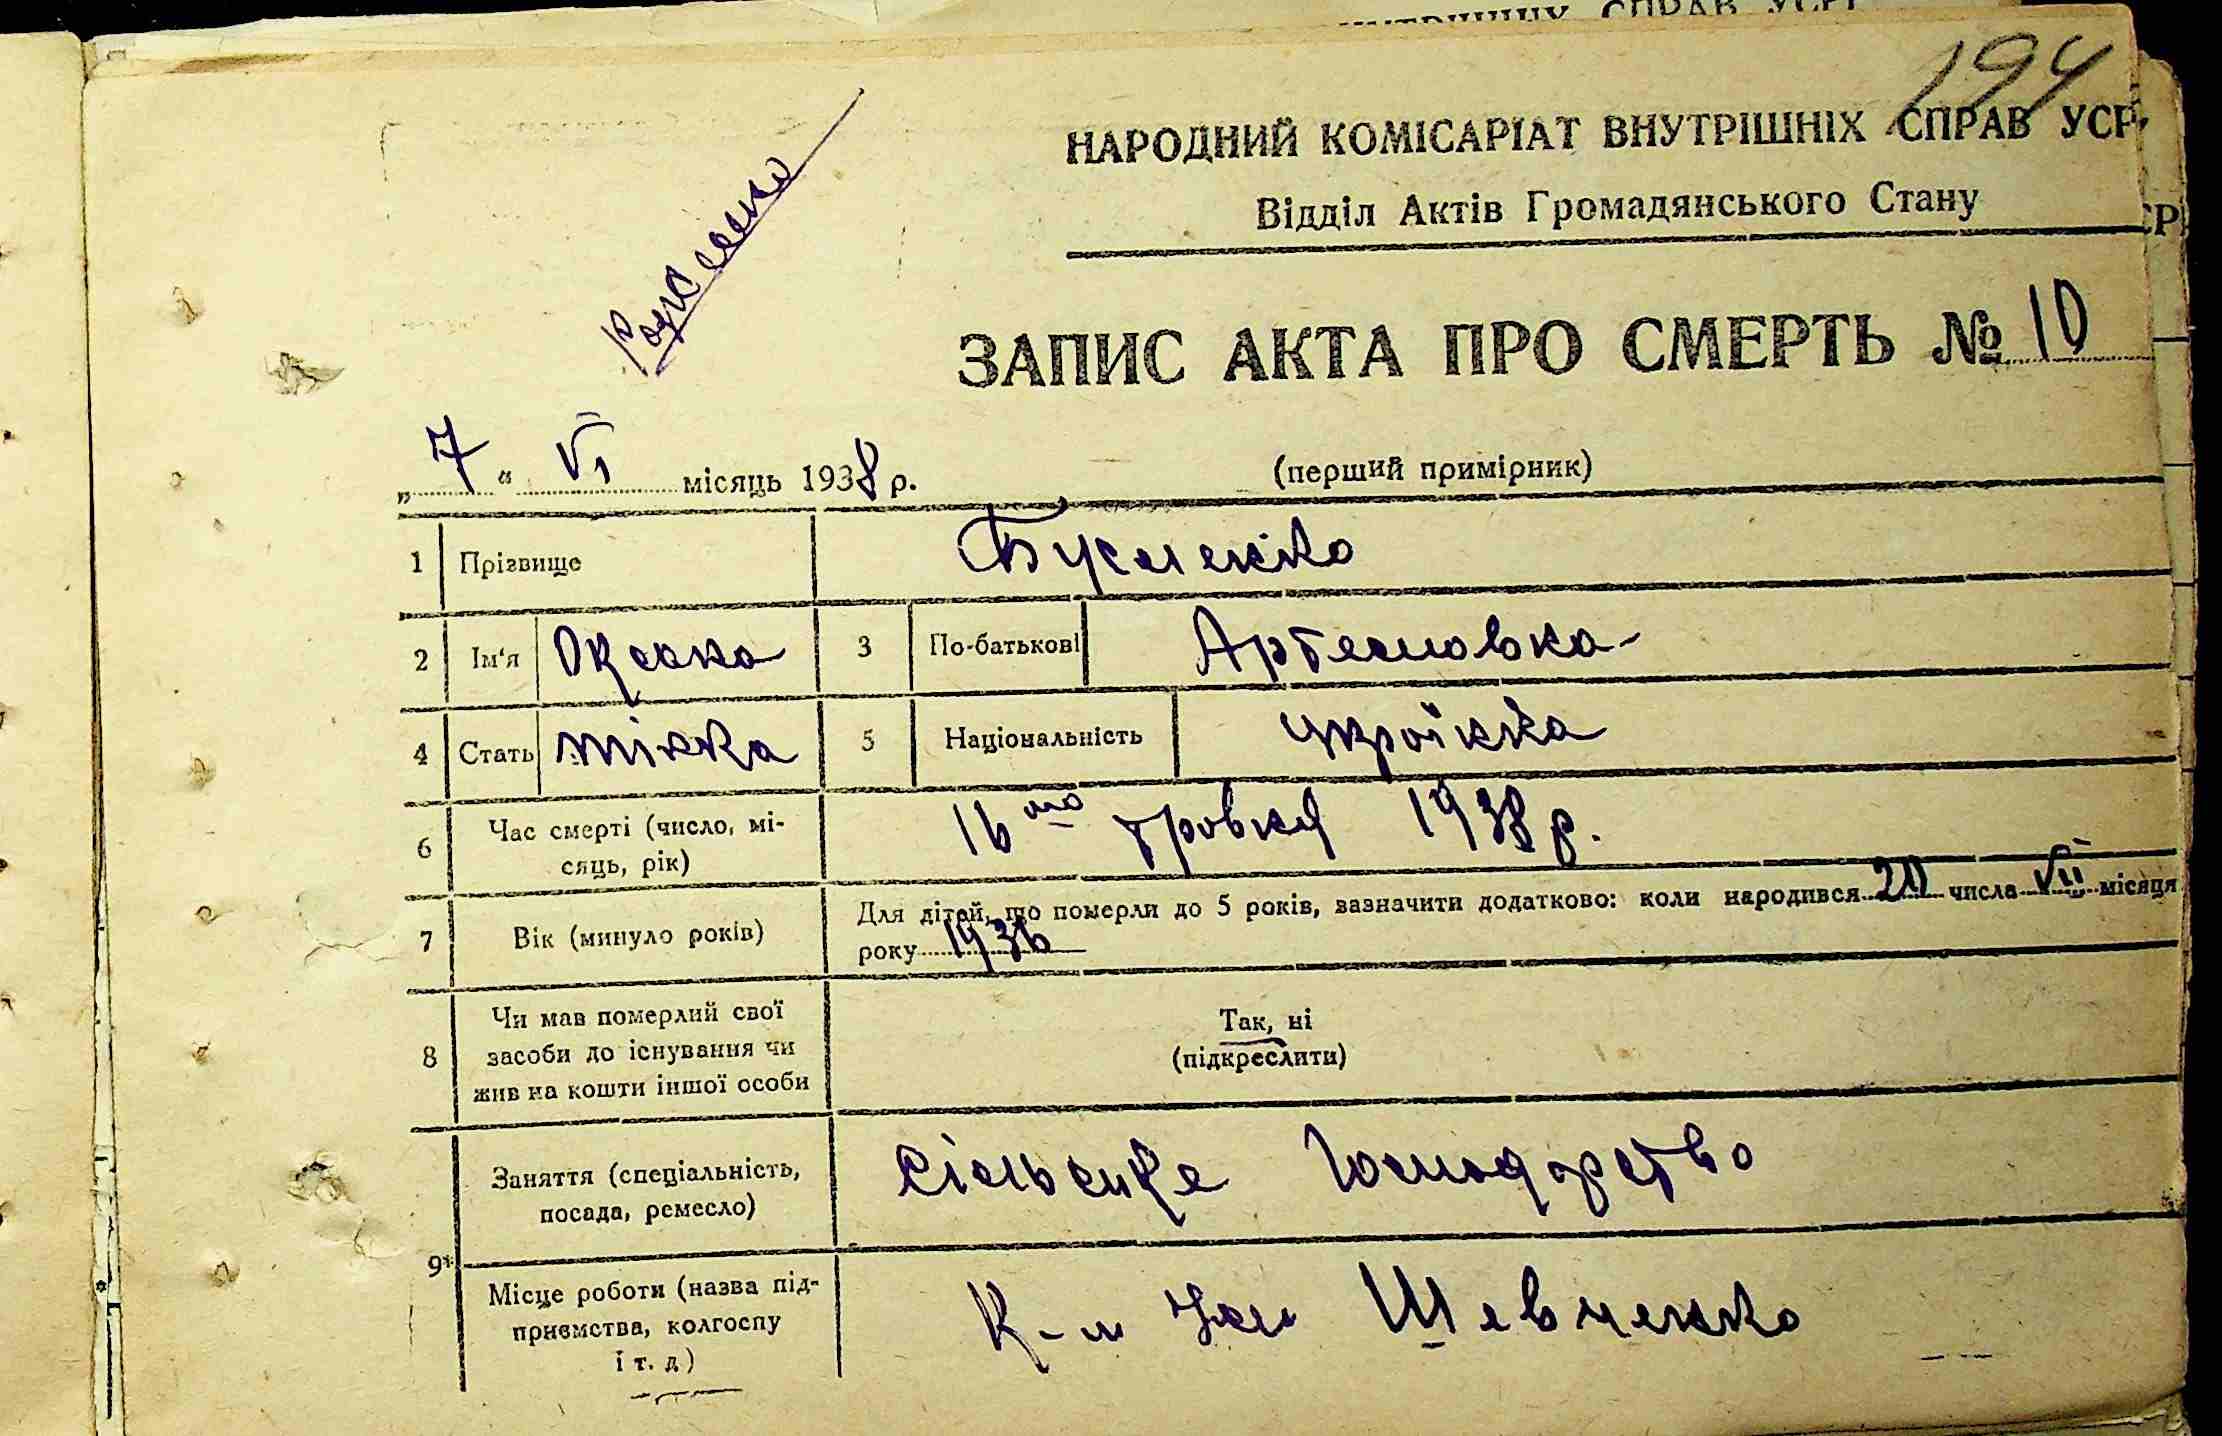 194
НАРОДНИЙ КОМІСАРІАТ ВНУТРІШНІХ СПРАВ УСРР
Відділ Актів Громадянського Стану
ЗАПИС АКТА ПРО СМЕРТЬ № 10
„7“ VI місяць 1938 р.
(перший примірник)
1 Прізвище
2 Ім'я Оксана 3 По-батькові Артемовна
4 Стать жінка 5 Національність українка
6 Час смерті (число, місяць, рік) 16го травня 1938 р.
7 Вік (минуло років) Для дітей, що померли до 5 років, зазначити додатково: коли народився 20 числа VII місяця
року 1936
8 Чи мав померлий свої
засоби до існування чи
жив на кошти іншої особи
Так, ні
(підкреслити)
9*
Заняття (спеціальність,
посада, ремесло)
сільське господарство
Місце роботи (назва під-
приємства, колгоспу
і т. д)
Шевченко